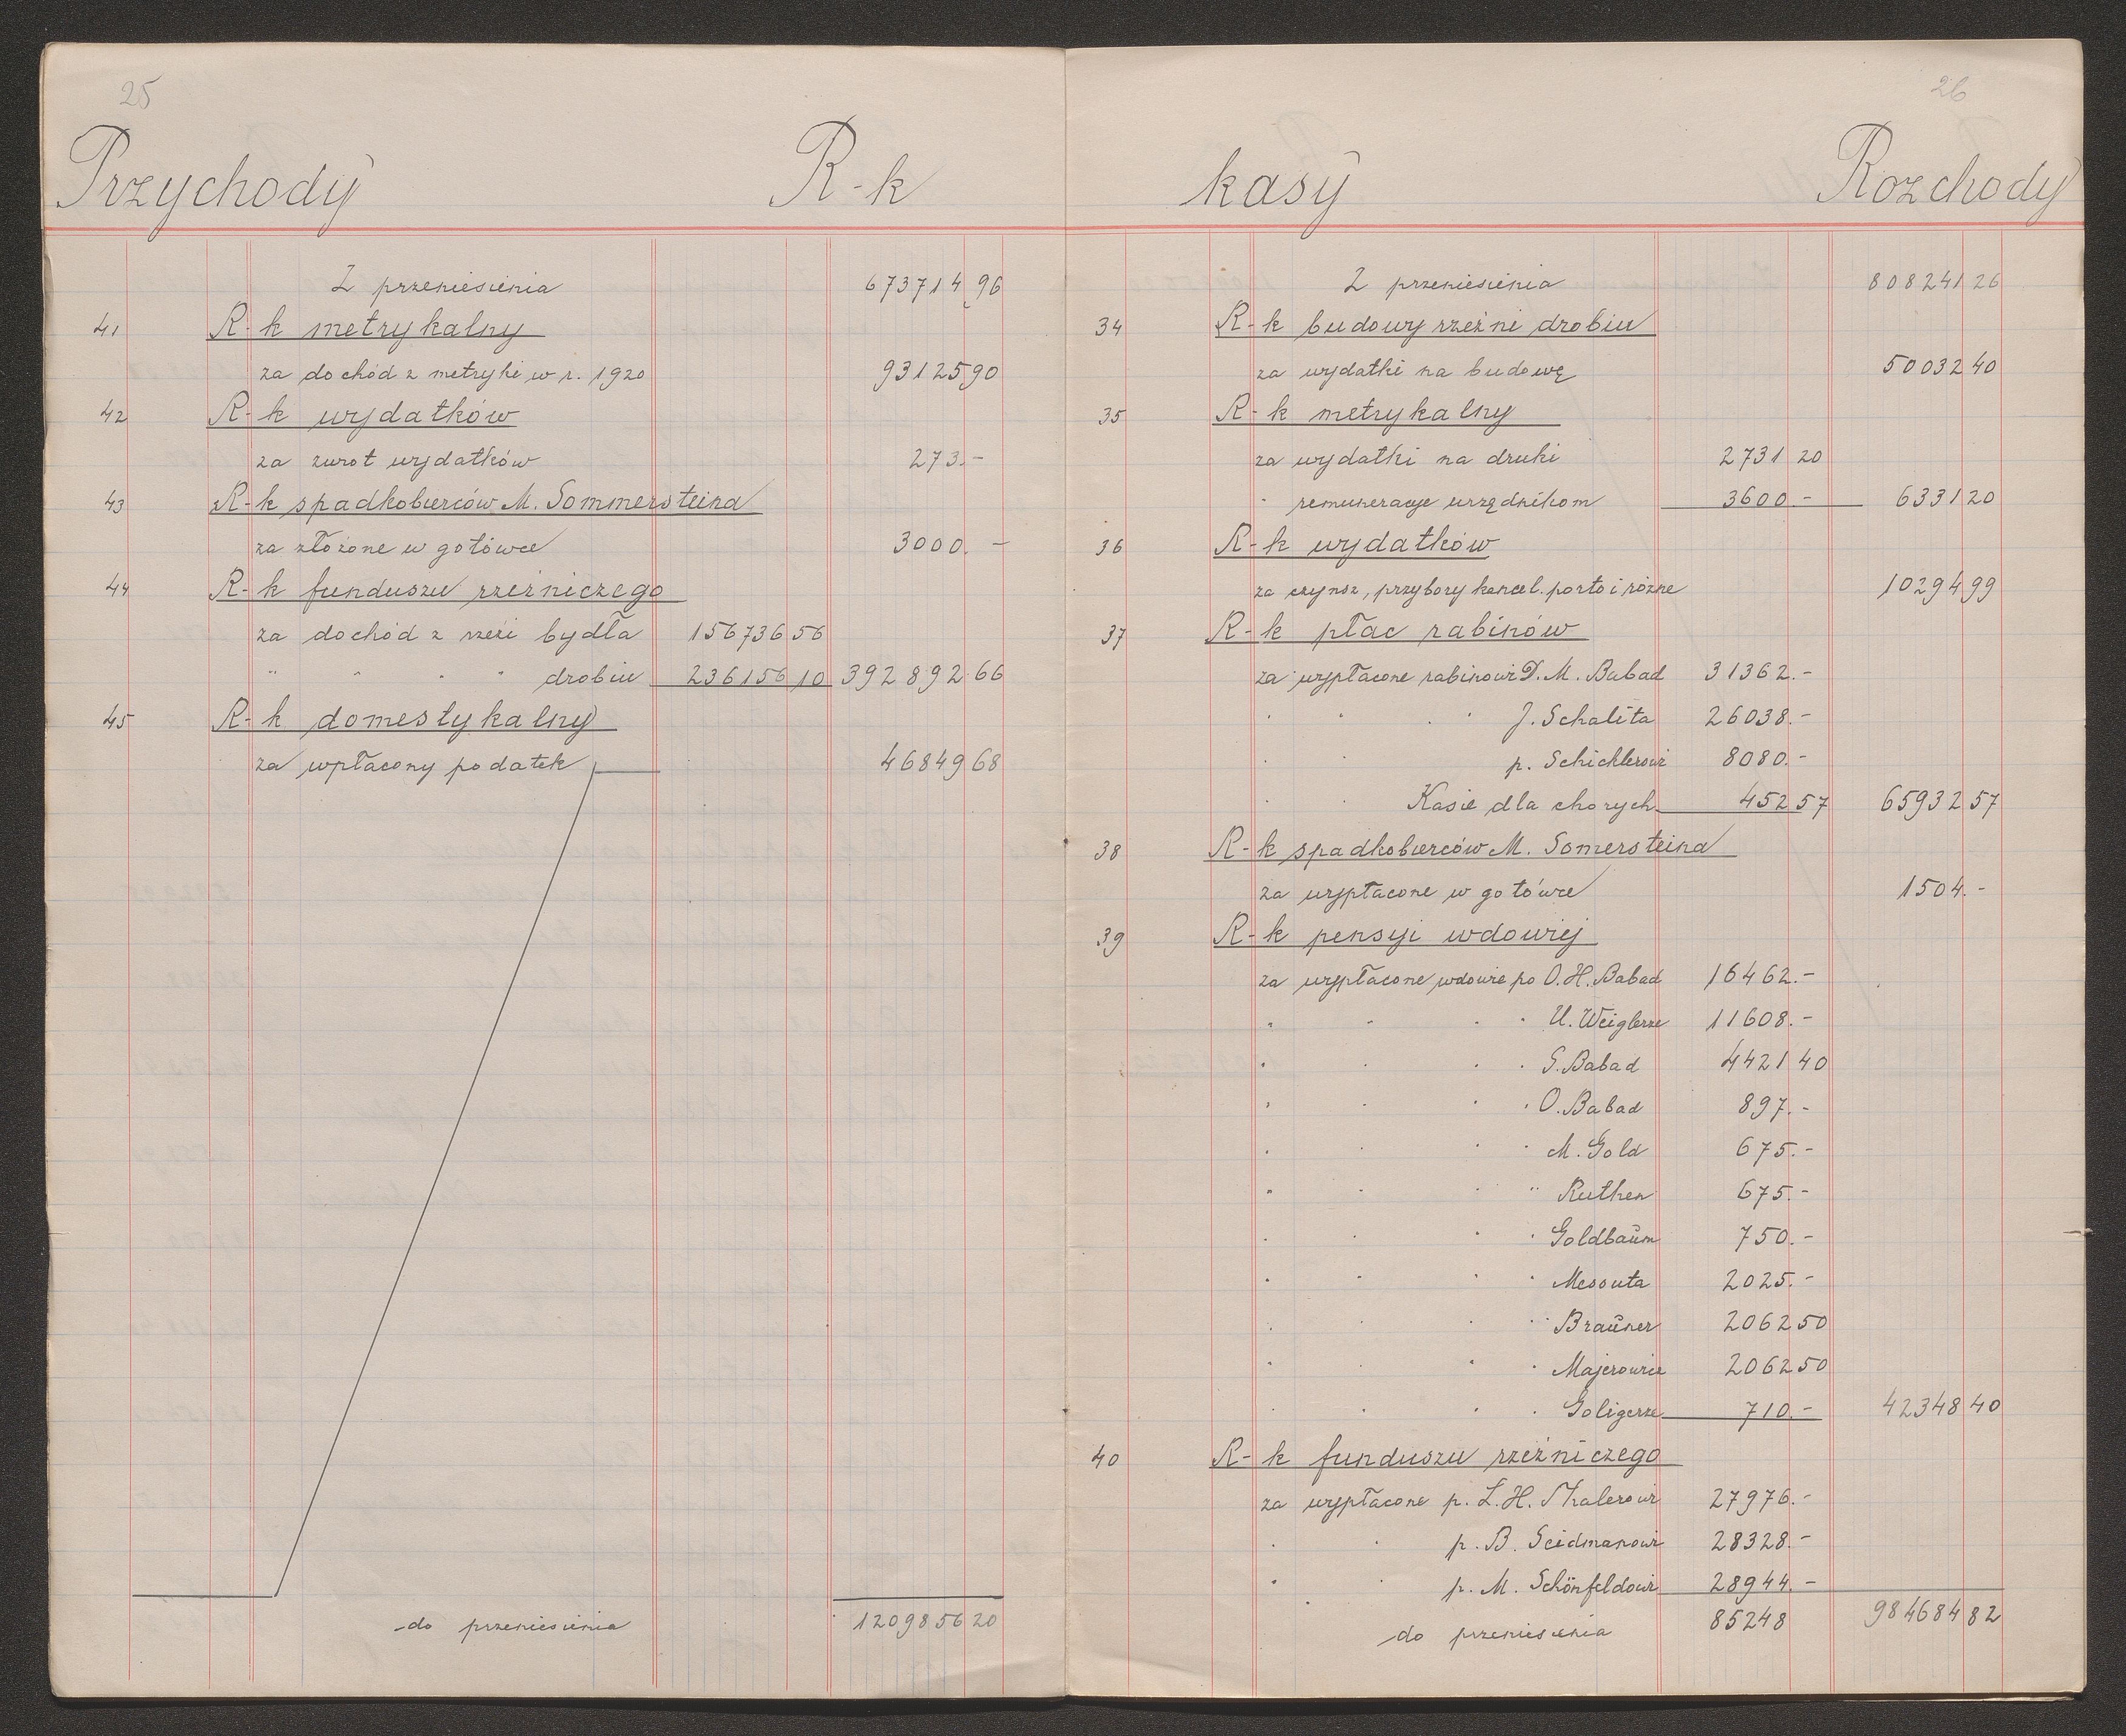 25
Przychody R-k
Z przeniesienia 673714 96
41 R-k metrykalny
za dochód z metryki w r. 1920 93125 90
42 R-k wydatków
za zwrot wydatków 273.-
43 R-k spadkobierców M. Sommersteina
za złożone w gotówce 3000.-
44 R-k funduszu rzeźniczego
za dochód z rzezi bydła 156736 56
" " " " drobiu 236156 10 392892 66
45 R-k domestykalny
za wpłacony podatek 46849 68
do przeniesienia 1209856 20
26
kasy Rozchody
Z przeniesienia 808241 26
34 R-k budowy rzeźni drobiu
za wydatki na budowę 50032 40
35 R-k metrykalny
za wydatki na druki 2731 20
" remuneracye urzędnikom 3600.- 6331 20
36 R-k wydatków
za czynsz, przybory kancel. porto i różne 10294 99
37 R-k płac rabinów
za wypłacone rabinowi D. M. Babad 31362.-
" " " " J. Schalita 26038.-
" " p. Schichlerowi 8080.-
" " Kasie dla chorych 452 57 65932 57
38 R-k spadkobierców M. Somersteina
za wypłacone w gotówce 1504.-
39 R-k pensyi wdowiej
za wypłacone wdowie po O. H. Babad 16462.-
" " " " U. Weiglerze 11608.-
" " " " S. Babad 4421 40
" " " " O. Babad 897.-
" " " " M. Gold 675.-
" " " " Ruthen 675.-
" " " " Goldbaum 750.-
" " " " Messuta 2025.-
" " " " Brauner 2062 50
" " " " Majerowicz 2062 50
" " " " Goligerze 710.- 42348 40
40 R-k funduszu rzeźniczego
za wypłacone p. L. H. Thalerowi 27976.-
" " p. B. Seidmanowi 28328.-
" " p. M. Schönfeldowi 28944.-
do przeniesienia 85248 984684 82